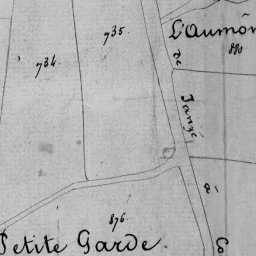 L'Aumôn
735.
880
734.
de
Janzé
876.
Petite Garde.